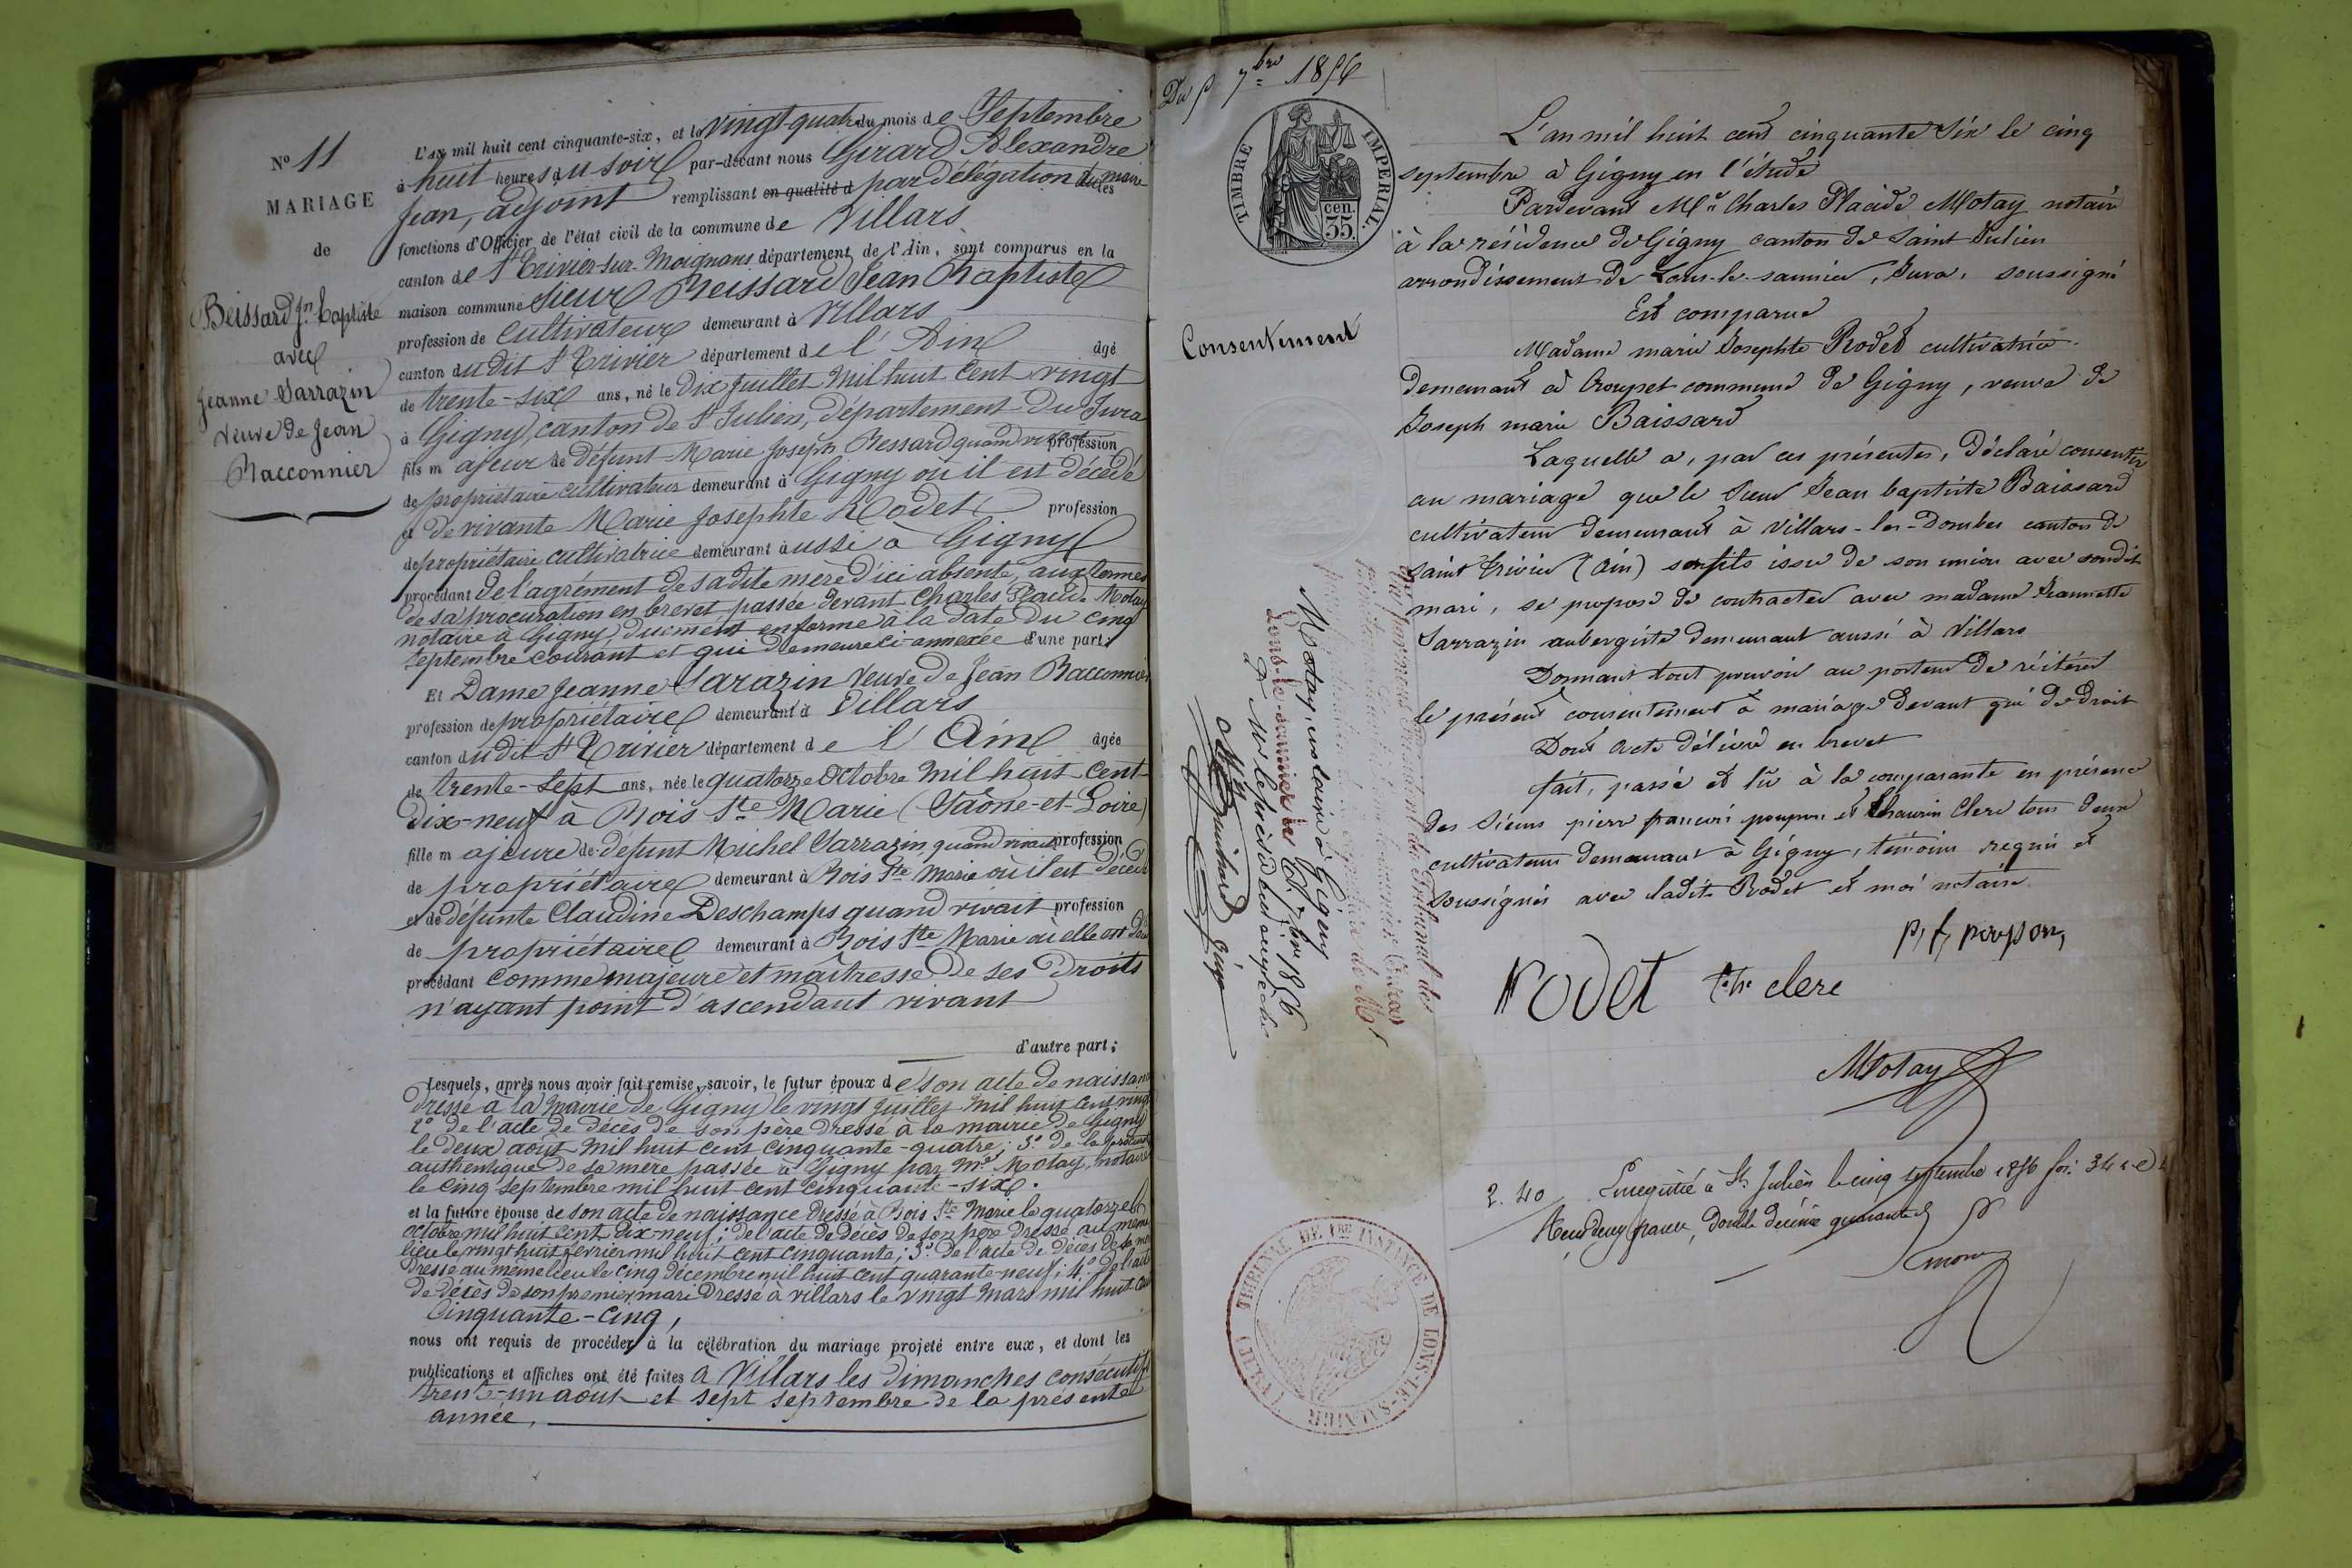 N° 11
MARIAGE
de
Beissard Jn Baptiste
avec
Jeanne Sarrazin
veuve de Jean
Racconnier
L'an mil huit cent cinquante-six, et le vingt-quatre du mois de Septembre
à huit heures du soir par-devant nous Girard Alexandre
Jean, adjoint remplissant en qualité d par délégation du maire les
fonctions d'Officier de l'état civil de la commune de Villars
canton de St Trivier-sur-Moignans département de l'Ain, sont comparus en la
maison commune Sieur Beissard Jean Baptiste
profession de cultivateur demeurant à Villars
canton du dit St Trivier département de l'Ain âgé
de trente-six ans, né le dix juillet mil huit cent vingt
à Gigny, canton de St Julien, département du Jura
fils majeur de défunt Marie Joseph Bessard quand vivait profession
de propriétaire cultivateur demeurant à Gigny où il est décédé
et de vivante Marie Josephte Rodet profession
de propriétaire cultivatrice demeurant aussi à Gigny
procédant de l'agrément de sadite mère d'ici absente, aux termes
de sa procuration en brevet passée devant Charles Placide Motay
notaire à Gigny, duement en forme à la date du cinq
septembre courant et qui demeure ci-annexée d'une part;
Et Dame Jeanne Sarazin Veuve de Jean Racconnier
profession de propriétaire demeurant à Villars
canton du dit St Trivier département de l'Ain âgée
de trente-sept ans, née le quatorze Octobre mil huit cent
dix-neuf à Bois Ste Marie (Saône-et-Loire)
fille majeure de défunt Michel Sarrazin, quand vivait profession
de propriétaire demeurant à Bois Ste Marie où il est décédé
et de défunte Claudine Deschamps quand vivait profession
de propriétaire demeurant à Bois Ste Marie où elle est
procédant comme majeure et maîtresse de ses droits
n'ayant point d'ascendant vivant
d'autre part;
Lesquels, après nous avoir fait remise, savoir, le futur époux de son acte de naissance
dressé à la Mairie de Gigny le vingt juillet mil huit cent vingt
2° de l'acte de décès de son père dressé à la mairie de Gigny
le deux août mil huit cent cinquante-quatre; 3° de la
authentique de sa mère passée à Gigny par Me Motay, notaire
le cinq septembre mil huit cent cinquante-six.
et la future épouse de son acte de naissance dressé à Bois Ste Marie le quatorze
octobre mil huit cent dix-neuf; de l'acte de décès de son père dressé au même
lieu le vingt huit fevrier mil huit cent cinquante; 3° de l'acte de décès de sa mère
dressé au même lieu le cinq décembre mil huit cent quarante-neuf; 4° de l'acte
de décès de son premier mari dressé à Villars le vingt Mars mil huit cent
cinquante-cinq,
nous ont requis de procéder à la célébration du mariage projeté entre eux, et dont les
publications et affiches ont été faites à Villars les dimanches consécutifs
trente-un août et sept septembre de la présente
année.
Du 5 7bre 1856
TIMBRE IMPERIAL.
35 cen.
Consentement
L'an mil huit cent cinquante six le cinq
septembre à Gigny en l'étude
Pardevant Me Charles Placide Motay notaire
à la résidence de Gigny canton de Saint Julien
arrondissement de Lons-le-saunier, Jura, soussigné
Est comparue
Madame marie Josephte Rodet cultivatrice
demeurant à Croupet commune de Gigny, veuve de
Joseph marie Baissard
Laquelle a, par ces présentes, déclaré consentir
au mariage que le sieur Jean baptiste Baissard
cultivateur demeurant à Villars-les-Dombes canton de
Saint Trivier (Ain) son fils issu de son union avec son dit
mari, se propose de contracter avec madame Jeannette
Sarrazin aubergiste demeurant aussi à Villars
Donnant tout pouvoir au porteur de réitérer
le présent consentement à mariage devant qui de droit
Dont Acte délivré en brevet
fait, passé et lu à la comparante en présence
des sieurs pierre francois poupon et Thaurin Clerc tous deux
cultivateurs demeurant à Gigny, témoins requis et
soussignés avec ladite Rodet et moi notaire
p, f, poupon,
Rodet the clerc
Motay
2. 40 Enregistré à St Julien le cinq septembre 1856 fo: 34
Reçu deux francs, double décime quarante
Motay, notaire à Gigny
Lons-le-saunier le 7bre 1856
TRIBUNAL DE 1RE INSTANCE DE LONS-LE-SAUNIER (JURA)